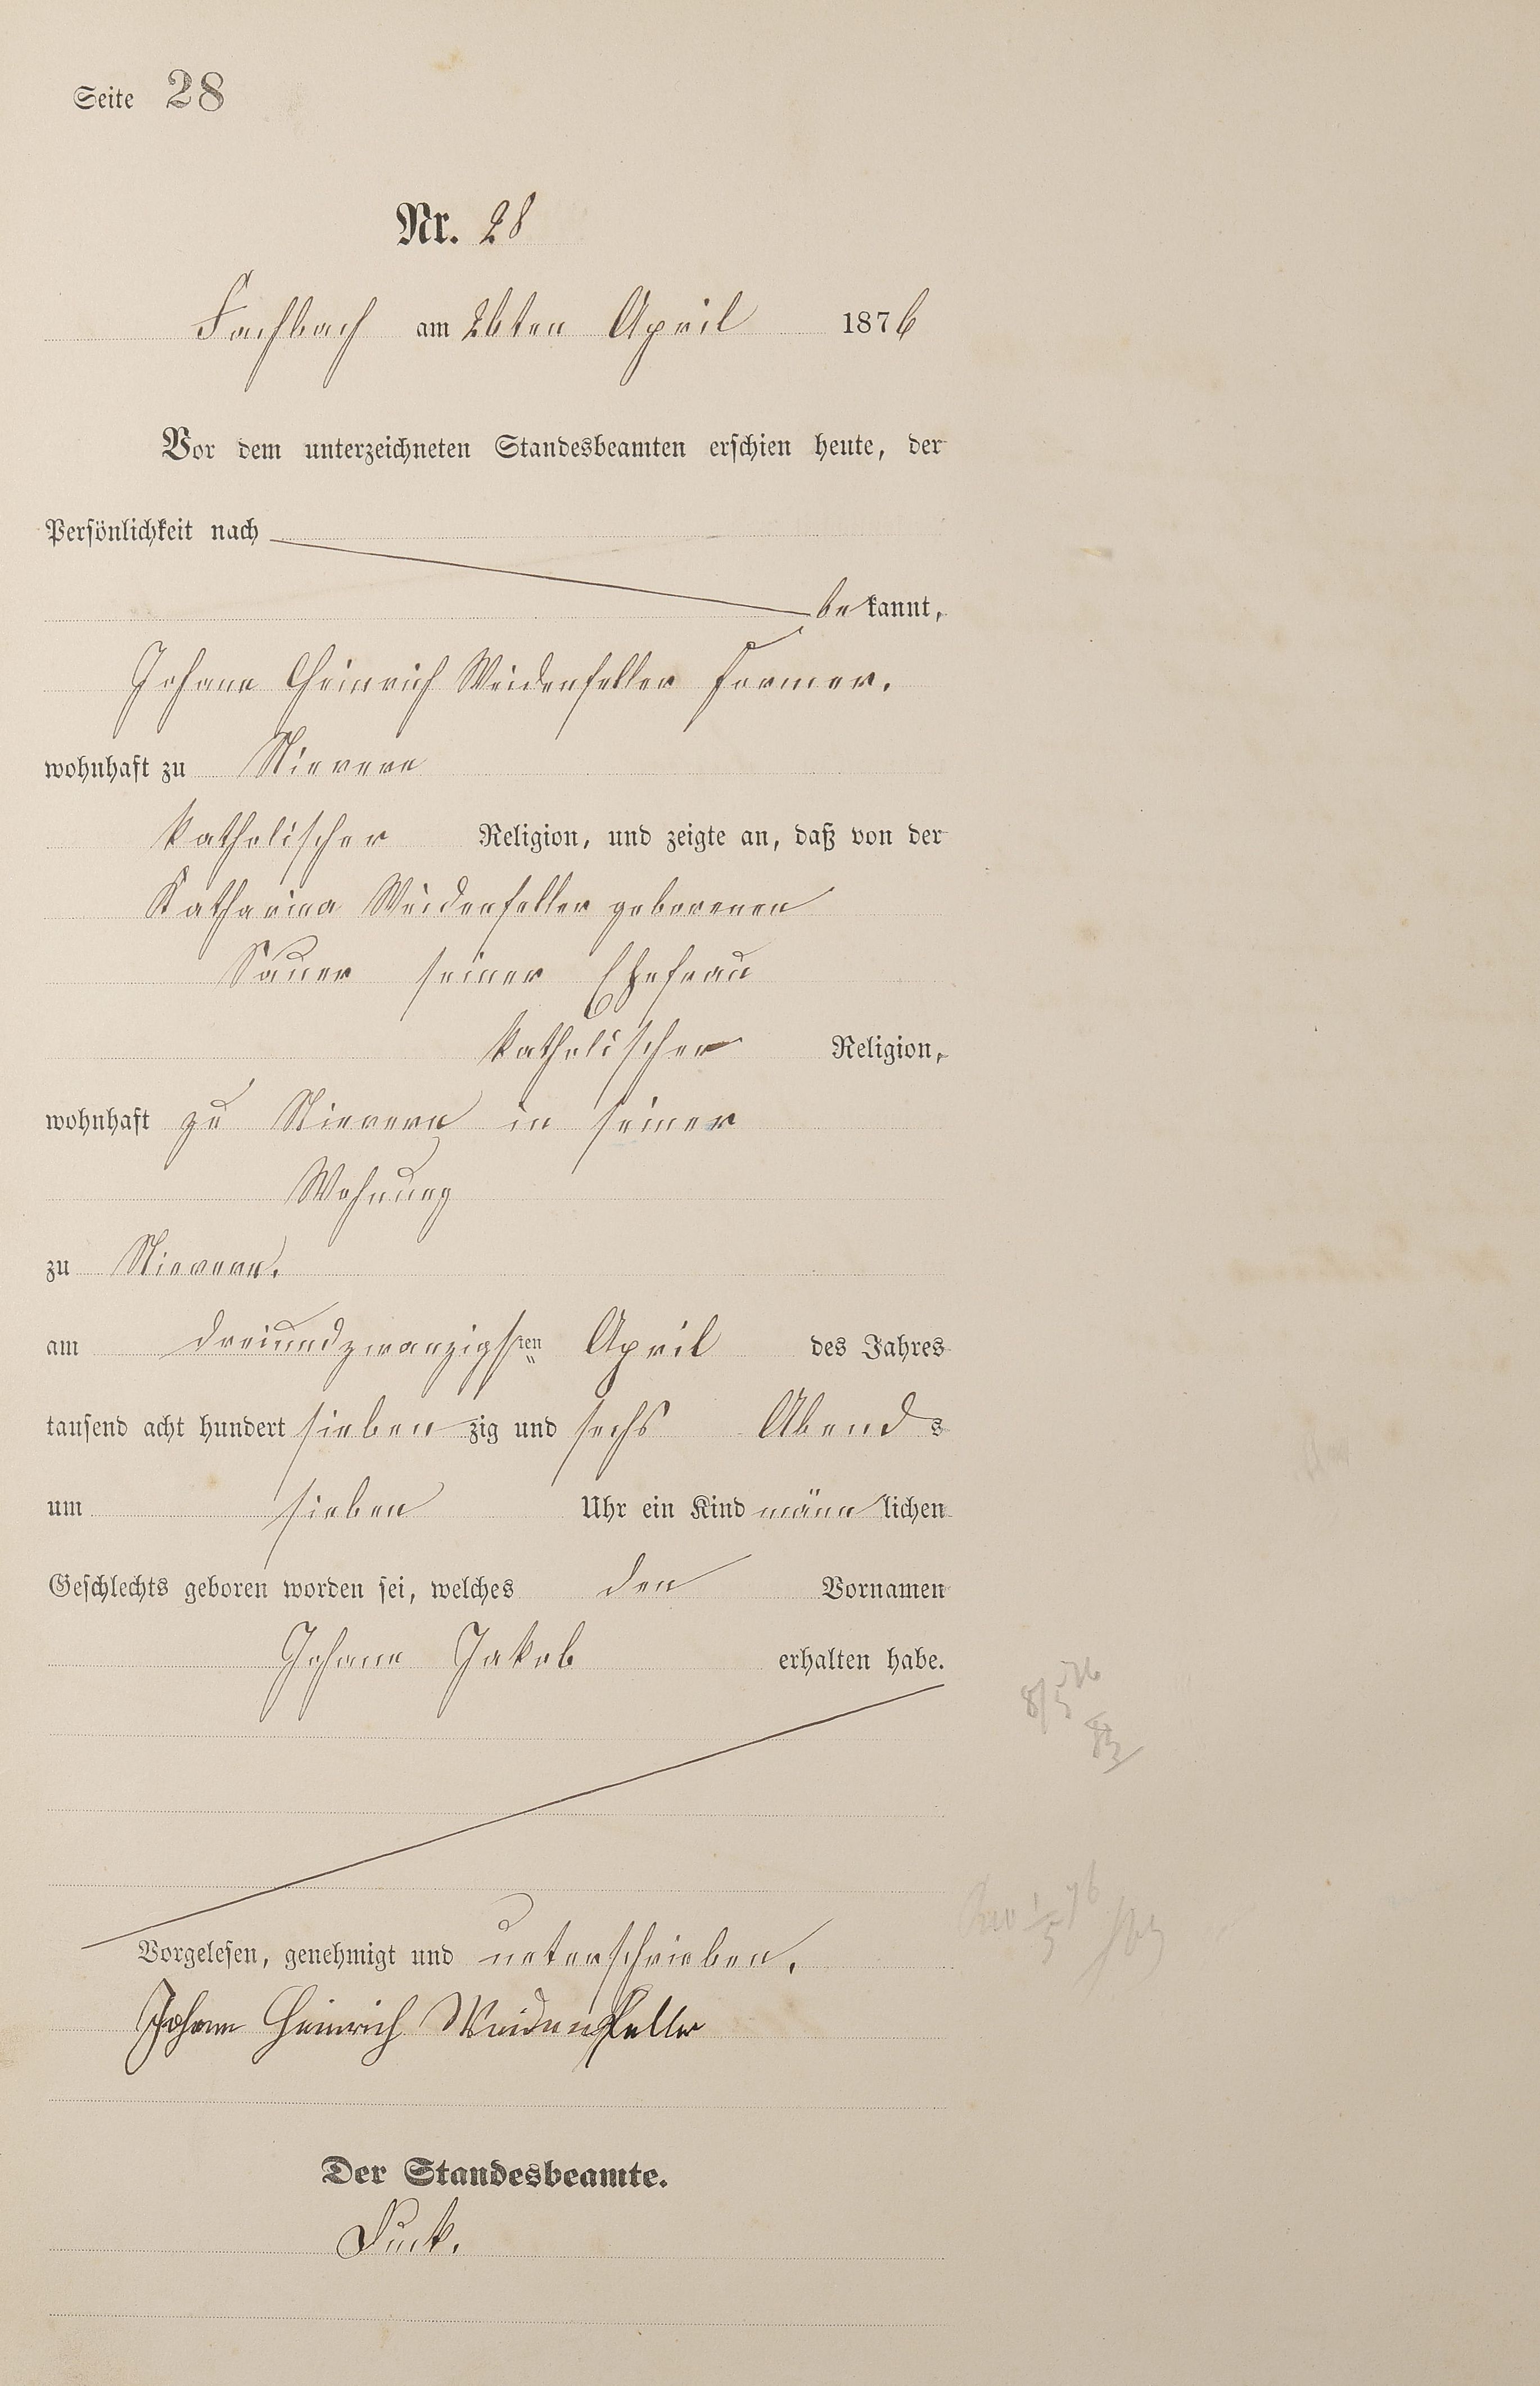 Seite 28
Nr. 28
Fachbach am 26ten April 1876
Vor dem unterzeichneten Standesbeamten erschien heute, der
Persönlichkeit nach
bekannt,
Johann Heinrich Weidenfeller Former.
wohnhaft zu Nievern
katholischer Religion, und zeigte an, daß von der
Katharina Weidenfeller geborenen
Sauer seiner Ehefrau
katholischer Religion,
wohnhaft zu Nievern in seiner
Wohnung
zu Nievern.
am dreiundzwanzigsten April des Jahres
tausend acht hundert siebenzig und sechs Abends
um sieben Uhr ein Kind männlichen
Geschlechts geboren worden sei, welches den Vornamen
Johann Jakob erhalten habe.
8/5 76
Vorgelesen, genehmigt und unterschrieben.
Johann Heinrich Weidenfeller
Der Standesbeamte.